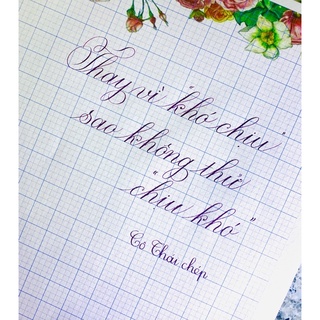 Thay vì "khó chịu"
sao không thử
"chịu khó"
Cô Thái chép